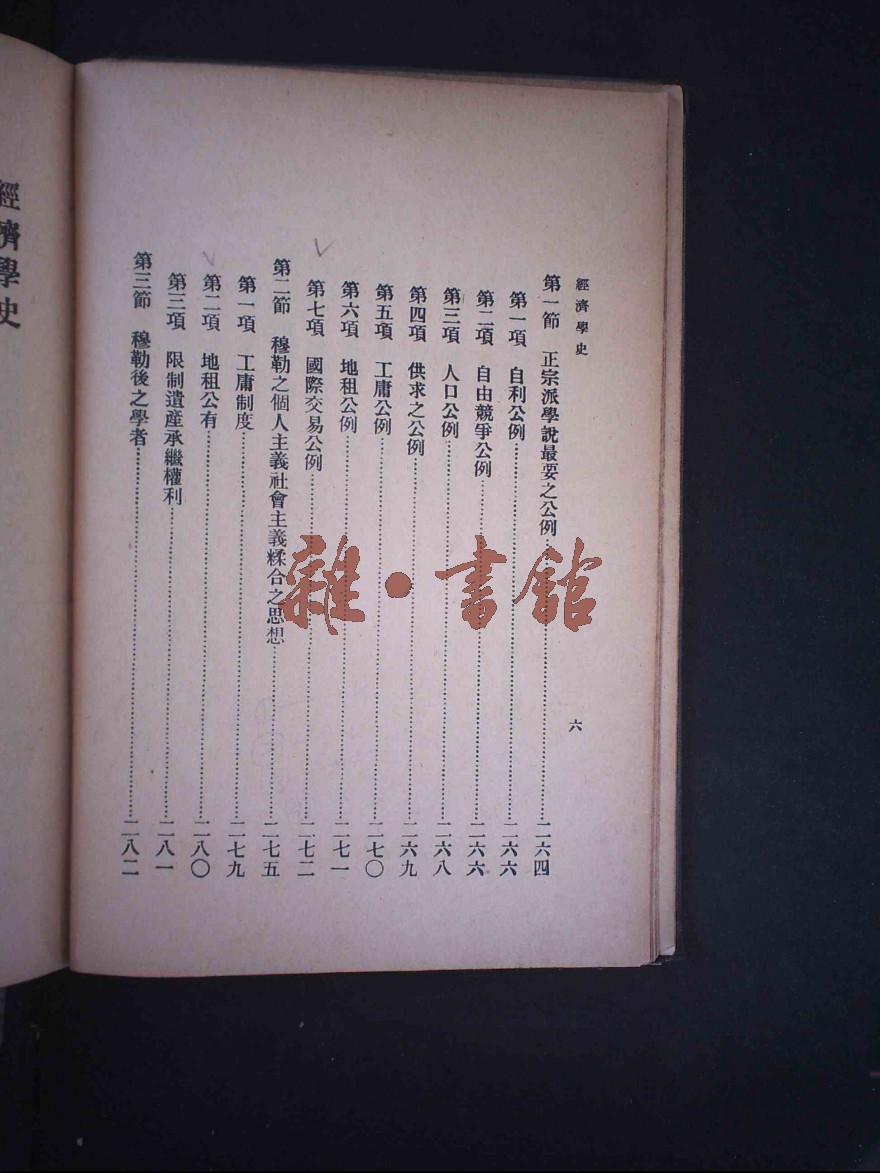 經濟學史
六
第一節 正宗派學說最要之公例……二六四
第一項 自利公例……二六六
第二項 自由競爭公例……二六六
第三項 人口公例……二六八
第四項 供求之公例……二六九
第五項 工庸公例……二七〇
第六項 地租公例……二七一
第七項 國際交易公例……二七二
第二節 穆勒之個人主義社會主義糅合之思想……二七五
第一項 工庸制度……二七九
第二項 地租公有……二八〇
第三項 限制遺產承繼權利……二八一
第三節 穆勒後之學者……二八二
經濟學史
雜·書館